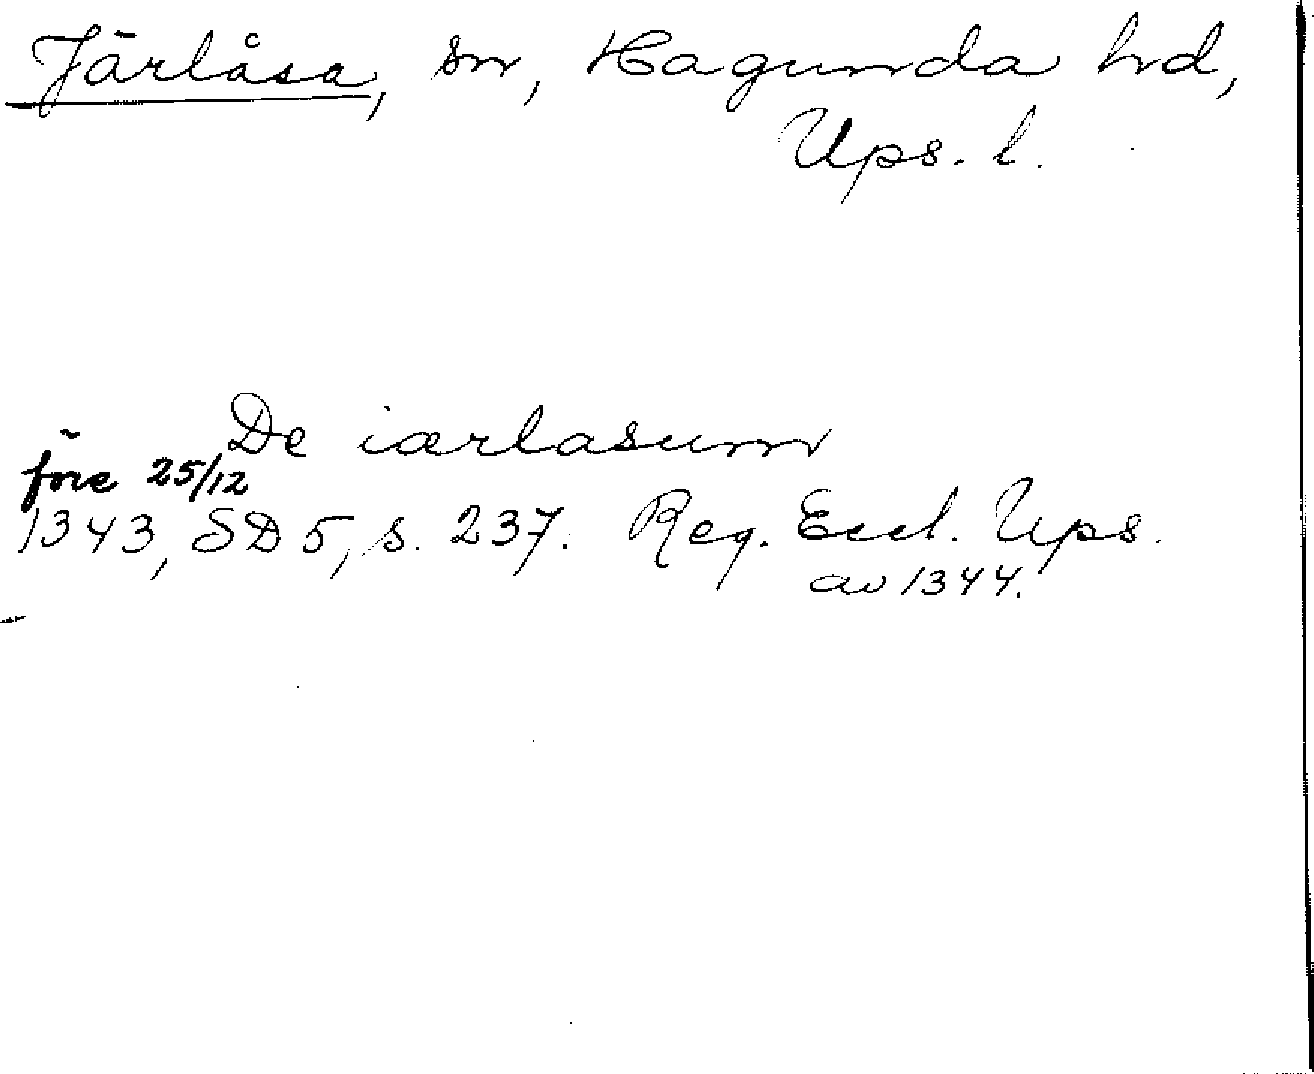 Järlåsa, sn, Hagunda hd,
Ups. l.
De iærlasum
före 25/12
1343, SD 5, s. 237. Reg. Eccl. Ups.
av 1344.